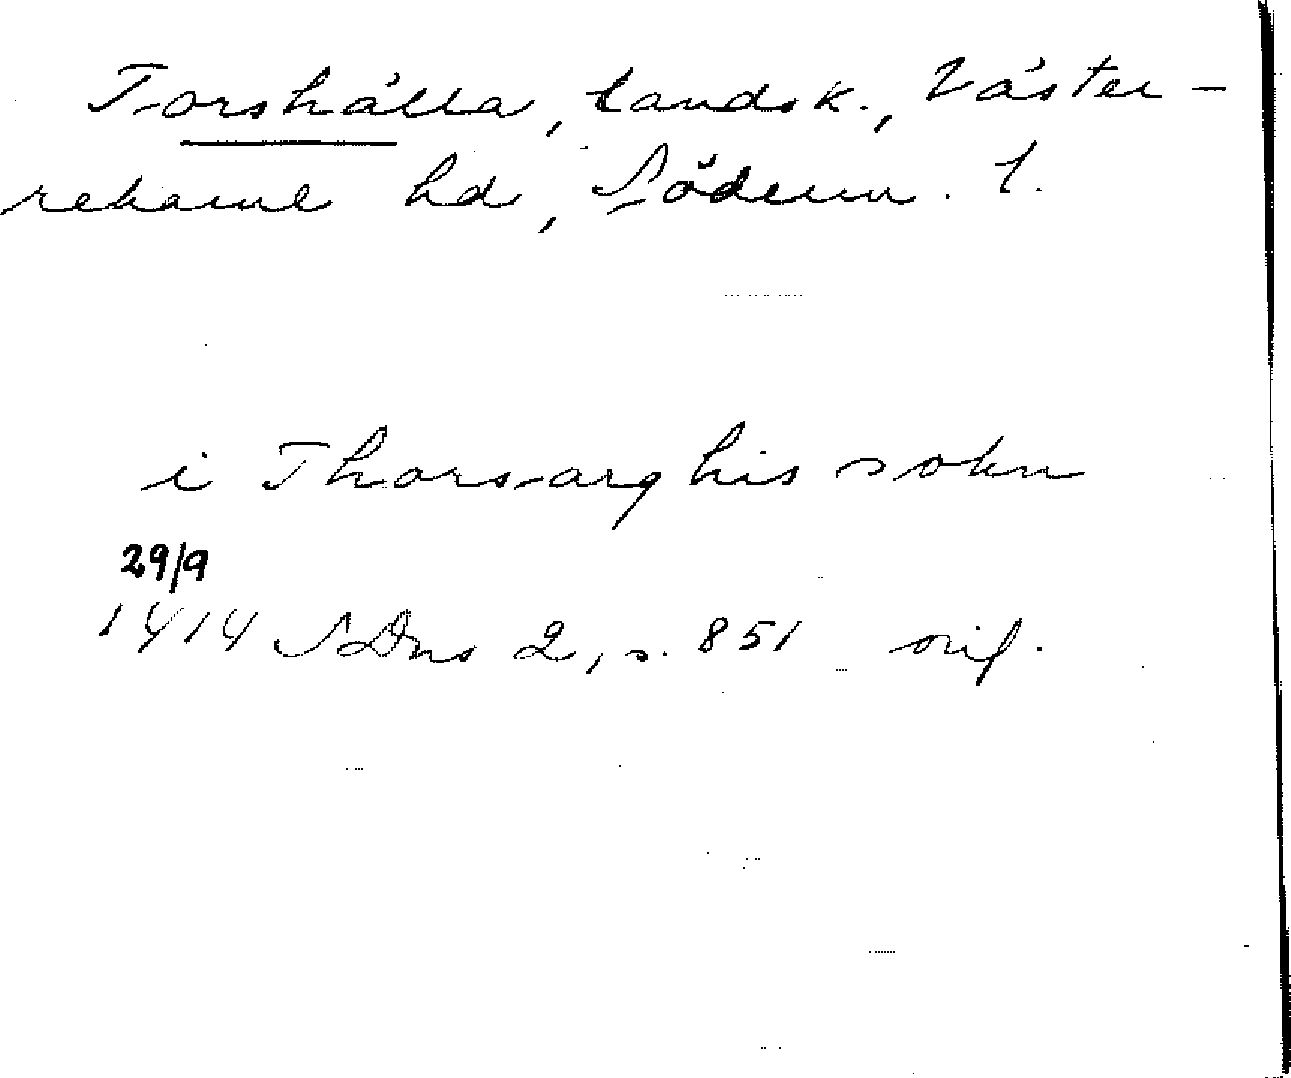 Torshälla, landsk., Väster-
rekarne hd, Söderm. l.
i Thorsarghis sokn
29/9
1414 SDns 2, s. 851 orig.